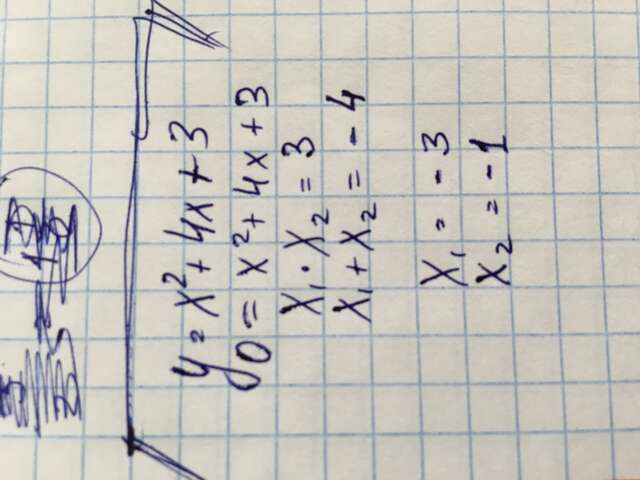 y = x² + 4x + 3
0 = x² + 4x + 3
x₁ · x₂ = 3
x₁ + x₂ = -4
x₁ = -3
x₂ = -1